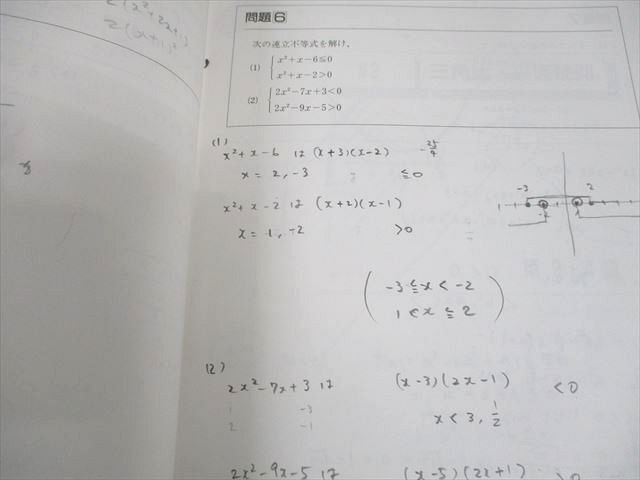 2(x²+2x+1)
2(x+1)²
問題6
次の連立不等式を解け．
(1) { x²+x−6≦0
x²+x−2>0
(2) { 2x²−7x+3<0
2x²−9x−5>0
(1)
x²+x−6 は (x+3)(x−2) −25/4
x = 2, −3 ≦0
x²+x−2 は (x+2)(x−1)
x = 1, −2 >0
−3 2
−2 1
( −3≦x<−2
1<x≦2 )
(2)
2x²−7x+3 は (x−3)(2x−1) <0
1 −3
2 −1
x<3, 1/2
2x²−9x−5 は (x−5)(2x+1) >0